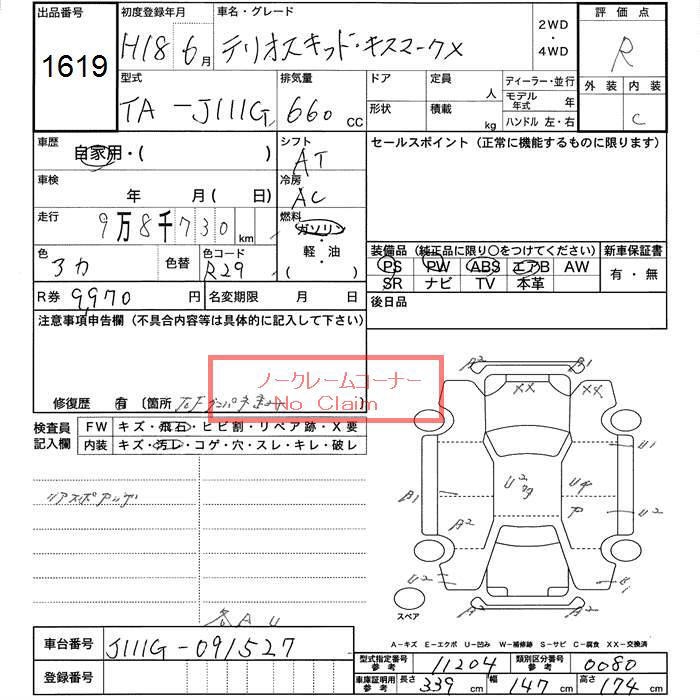 出品番号 1619
初度登録年月 H18 6月
車名・グレード テリオスキッド・キスマークX
2WD・4WD
評価点 R
外装 内装 C
型式 TA-J111G
排気量 660 CC
ドア 定員 人
形状 積載 kg
ディーラー・並行
モデル年式 年
ハンドル 左・右
車歴 自家用・( )
シフト AT
セールスポイント (正常に機能するものに限ります)
車検 年 月(日)
冷房 AC
走行 9万8千730km
燃料 ガソリン・軽・油 ( )
色 シカ 色替
色コード R29
装備品 (純正品に限り〇をつけてください)
新車保証書
PS PW ABS エアB AW
SR ナビ TV 本革
有・無
R券 9970円
名変期限 月 日
後日品
注意事項申告欄 (不具合内容等は具体的に記入して下さい)
ノークレームコーナー
No Claim
修復歴 有 〔箇所
検査員記入欄
FW キズ・飛石・ヒビ割・リペア跡・X要
内装 キズ・汚レ・コゲ・穴・スレ・キレ・破レ
リアスポアナ
各AU
A2 A1
XX XX
U1
A1 U2
U2
A2
U2 U1
A2 A2
スペア
A-キズ E-エクボ U-凹み W-補修跡 S-サビ C-腐食 XX-交換済
車台番号 J111G-091527
登録番号
型式指定番号参考 11204
類別区分番号参考 0080
車庫証明用参考 長さ 339cm 幅 147cm 高さ 174cm